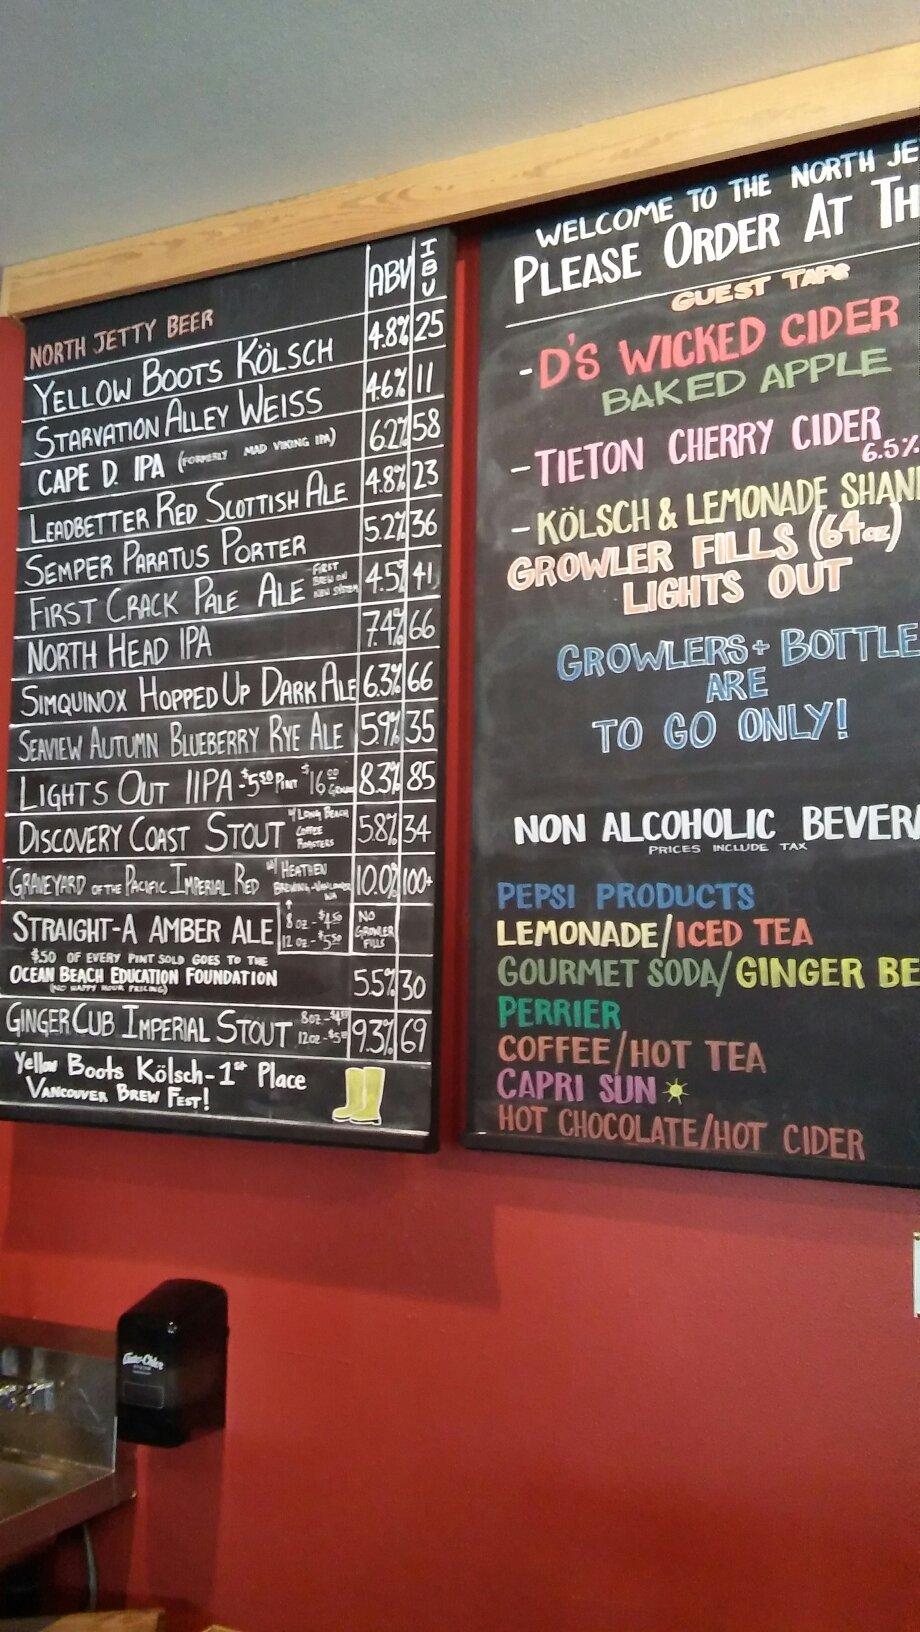 ABV IBU
NORTH JETTY BEER
YELLOW BOOTS KÖLSCH 4.8% 25
STARVATION ALLEY WEISS 4.6% 11
CAPE D. IPA (FORMERLY MAD VIKING IPA) 62% 58
LEADBETTER RED SCOTTISH ALE 4.8% 23
SEMPER PARATUS PORTER 5.2% 36
FIRST CRACK PALE ALE FIRST BREW ON NEW SYSTEM 4.5% 41
NORTH HEAD IPA 7.4% 66
SIMQUINOX HOPPED UP DARK ALE 6.3% 66
SEAVIEW AUTUMN BLUEBERRY RYE ALE 5.9% 35
LIGHTS OUT IIPA -$5.50 PINT $16.00 8.3% 85
DISCOVERY COAST STOUT W/ LONG BEACH COFFEE ROASTERS 5.8% 34
GRAVEYARD OF THE PACIFIC IMPERIAL RED W/ HEATHEN BREWING 10.0% 100+
STRAIGHT-A AMBER ALE 8 oz - $4.50 12 oz - $5.50 NO GROWLER FILLS
$.50 OF EVERY PINT SOLD GOES TO THE
OCEAN BEACH EDUCATION FOUNDATION 5.5% 30
(NO HAPPY HOUR PRICING)
GINGER CUB IMPERIAL STOUT 8oz 12oz 9.3% 69
Yellow Boots Kölsch - 1st Place
VANCOUVER BREW FEST!
WELCOME TO THE NORTH JE
PLEASE ORDER AT TH
GUEST TAPS
- D'S WICKED CIDER
BAKED APPLE
- TIETON CHERRY CIDER
6.5%
- KÖLSCH & LEMONADE SHAN
GROWLER FILLS (64oz)
LIGHTS OUT
GROWLERS + BOTTLE
ARE
TO GO ONLY!
NON ALCOHOLIC BEVERA
PRICES INCLUDE TAX
PEPSI PRODUCTS
LEMONADE/ICED TEA
GOURMET SODA/GINGER BE
PERRIER
COFFEE/HOT TEA
CAPRI SUN
HOT CHOCOLATE/HOT CIDER